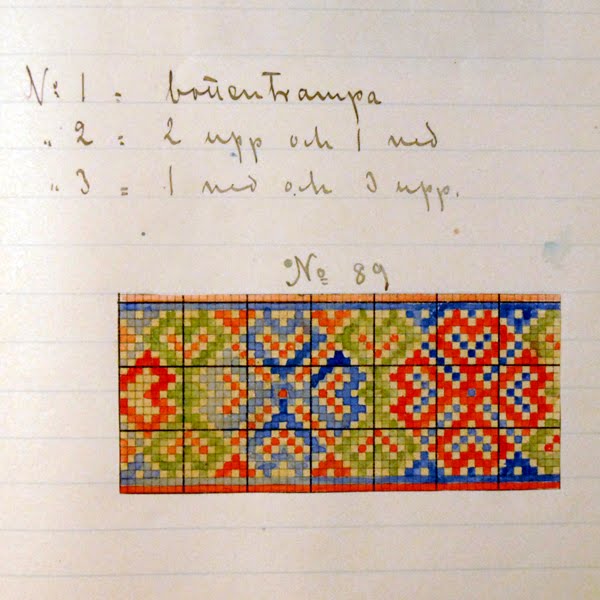 No 1 = bottentrampa
" 2 = 2 upp och 1 ned
" 3 = 1 ned och 3 upp.
No 89